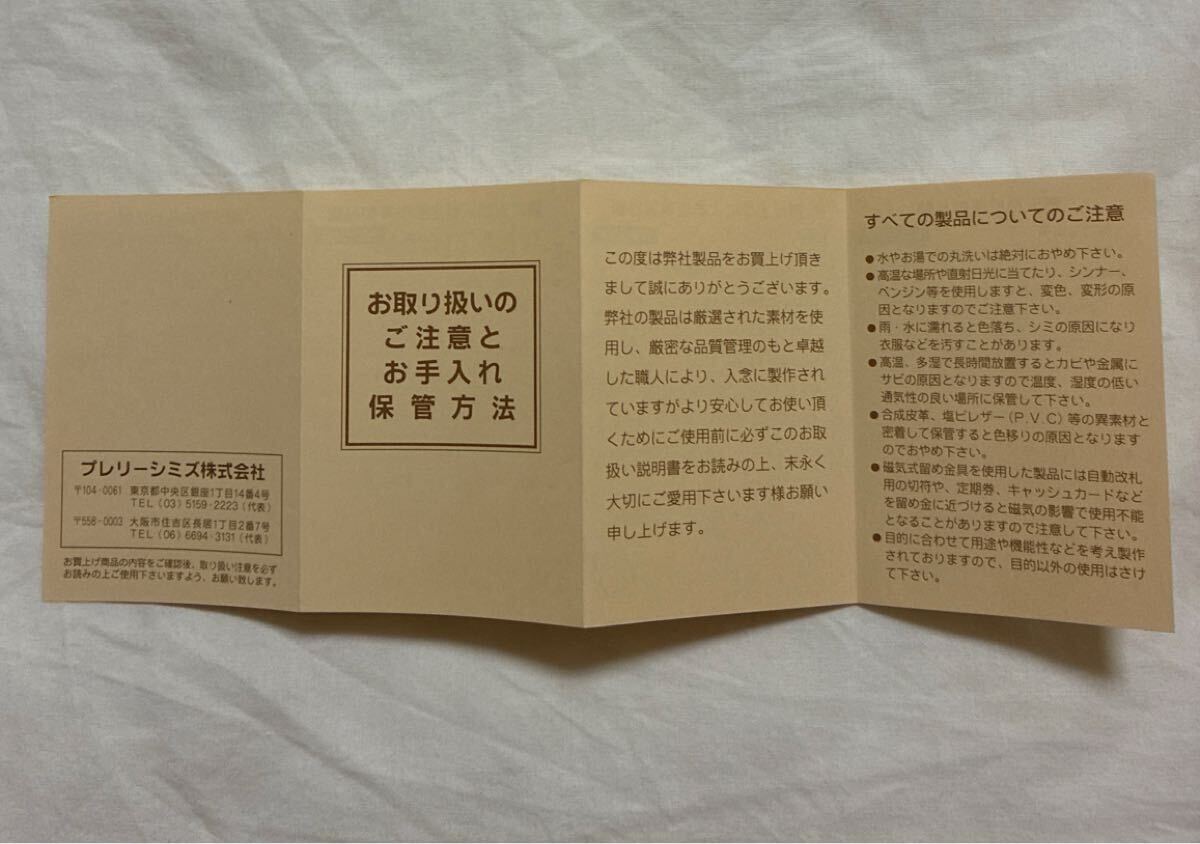 プレリーシミズ株式会社
〒104-0061 東京都中央区銀座1丁目14番4号
TEL (03) 5159-2223 (代表)
〒558-0003 大阪市住吉区長居1丁目2番7号
TEL (06) 6694-3131 (代表)
お買上げ商品の内容をご確認後、取り扱い注意を必ず
お読みの上ご使用下さいますよう、お願い致します。
お取り扱いの
ご注意と
お手入れ
保管方法
この度は弊社製品をお買上げ頂き
まして誠にありがとうございます。
弊社の製品は厳選された素材を使
用し、厳密な品質管理のもと卓越
した職人により、入念に製作され
ていますがより安心してお使い頂
くためにご使用前に必ずこのお取
扱い説明書をお読みの上、末永く
大切にご愛用下さいます様お願い
申し上げます。
すべての製品についてのご注意
●水やお湯での丸洗いは絶対におやめ下さい。
●高温な場所や直射日光に当てたり、シンナー、
ベンジン等を使用しますと、変色、変形の原
因となりますのでご注意下さい。
●雨・水に濡れると色落ち、シミの原因になり
衣服などを汚すことがあります。
●高温、多湿で長時間放置するとカビや金属に
サビの原因となりますので温度、湿度の低い
通気性の良い場所に保管して下さい。
●合成皮革、塩ビレザー(P.V.C)等の異素材と
密着して保管すると色移りの原因となります
のでおやめ下さい。
●磁気式留め金具を使用した製品には自動改札
用の切符や、定期券、キャッシュカードなど
を留め金に近づけると磁気の影響で使用不能
となることがありますので注意して下さい。
●目的に合わせて用途や機能性などを考え製作
されておりますので、目的以外の使用はさけ
て下さい。